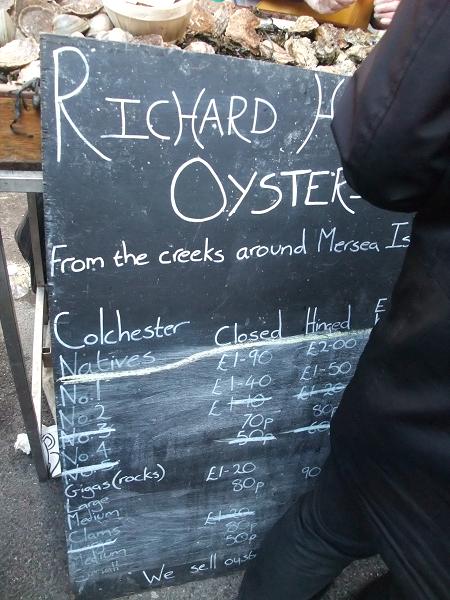 RICHARD H
OYSTER
From the creeks around Mersea Is
Colchester Closed Hinged E
Natives £1-90 £2-00
No. 1 £1-40 £1-50
No. 2 £1-10 £1-20
No. 3 70p 80p
No. 4 50p 60
Gigas (rocks)
Large £1-20 90
Medium 80p
Clams £1-20
80p
Medium 50p
We sell